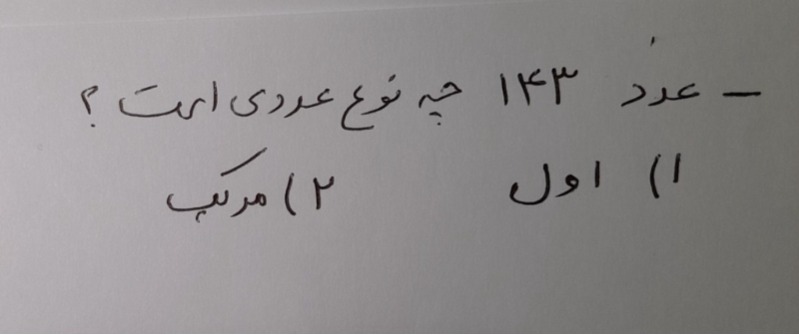 - عدد ۱۴۳ چه نوع عددی است ؟
۱) اول ۲) مرکب